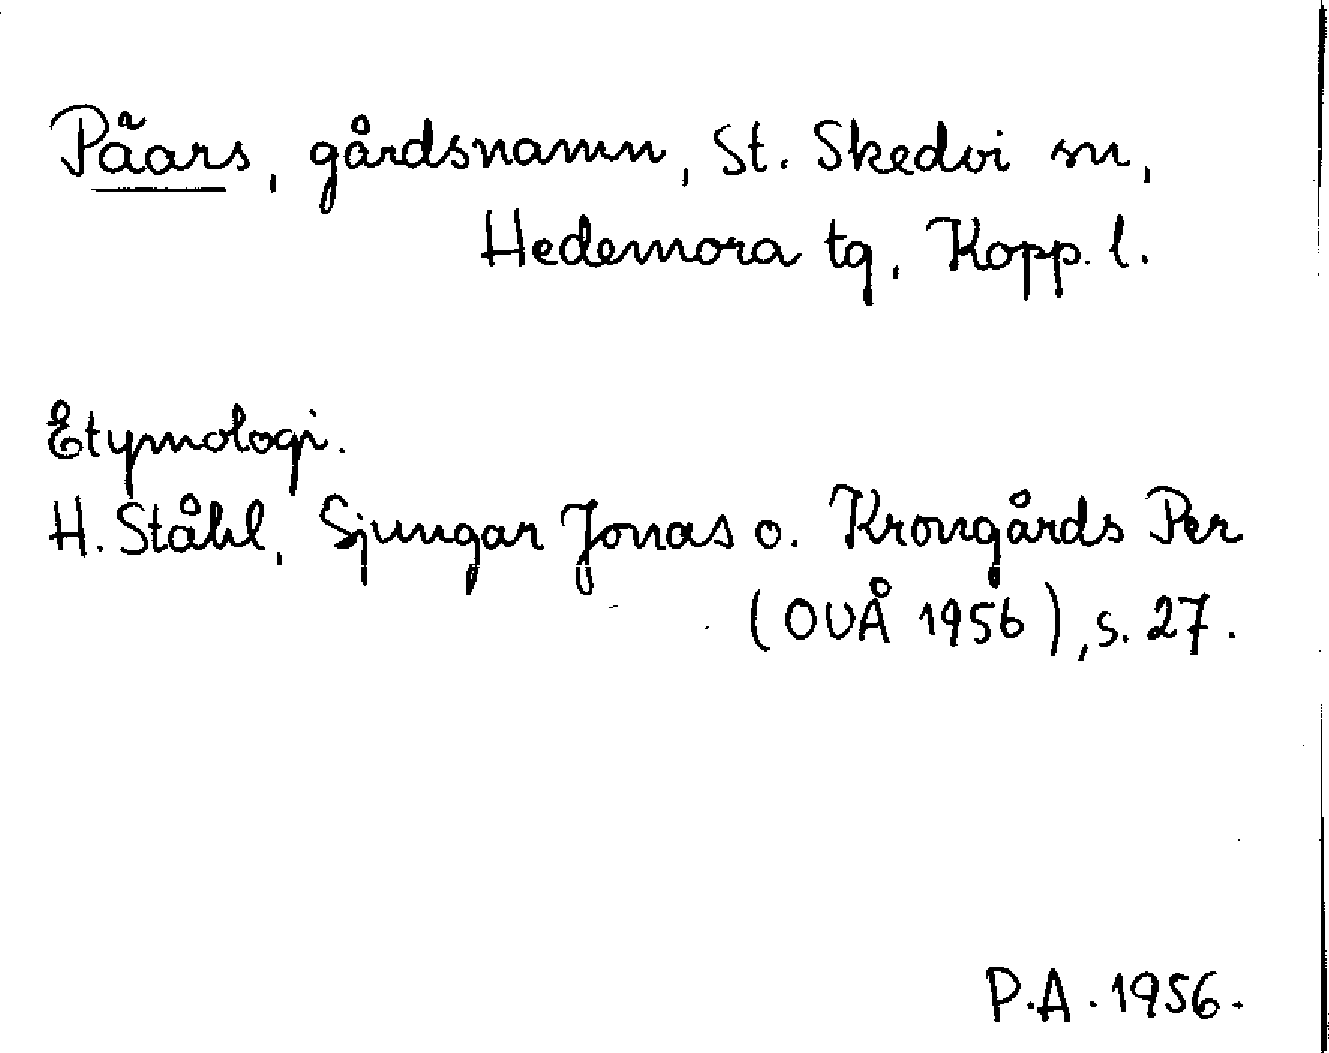 Påars, gårdsnamn, St. Skedvi sn,
Hedemora tg, Kopp. l.
Etymologi.
H. Ståhl, Sjungar Jonas o. Krongårds Per
(OUÅ 1956), s. 27.
P.A. 1956.